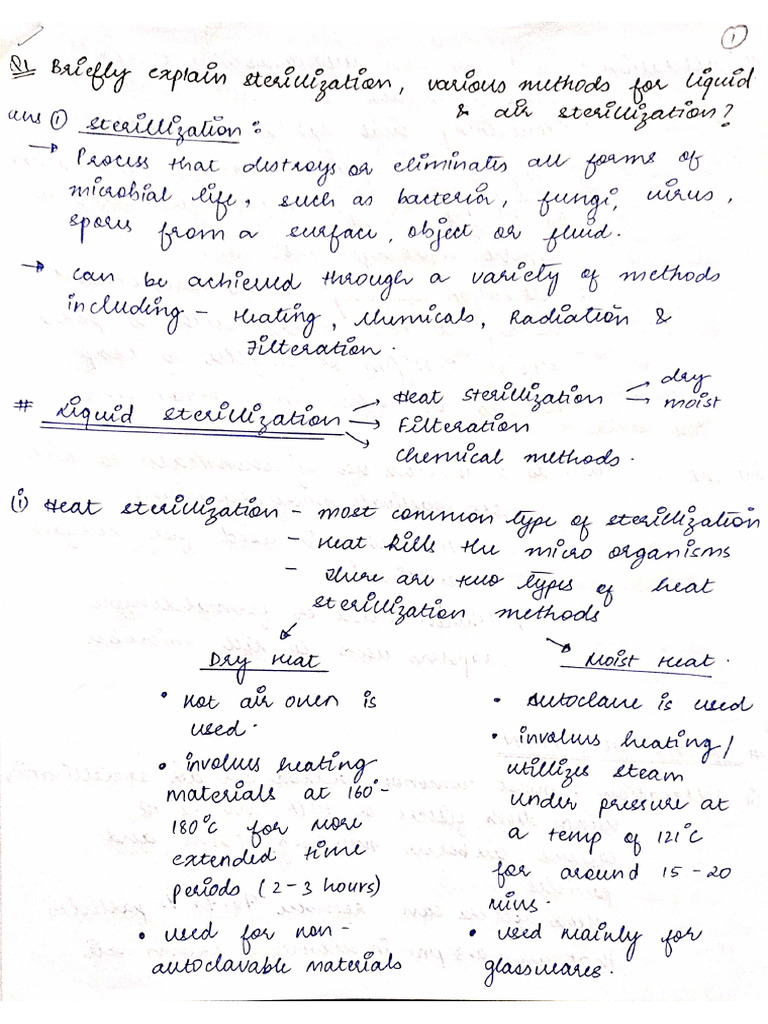 1
Q1 Briefly explain sterillization, various methods for liquid
& air sterillization?
ans ① sterillization :
→ Process that destroys or eliminates all forms of
microbial life, such as bacteria, fungi, virus,
spores from a surface, object or fluid.
→ can be achieved through a variety of methods
including – Heating, Chemicals, Radiation &
Filteration.
# Liquid sterillization → Heat sterillization → dry
→ moist
→ Filteration
→ Chemical methods.
(i) Heat sterillization – most common type of sterillization
– Heat kills the micro organisms
– There are two types of heat
sterillization methods
Dry Heat
• Hot air oven is
used.
• involves heating
materials at 160°-
180°C for more
extended time
periods (2-3 hours)
• used for non-
autoclavable materials
Moist Heat.
• Autoclave is used
• involves heating/
utillizes steam
under pressure at
a temp of 121°C
for around 15-20
mins.
• used mainly for
glasswares.